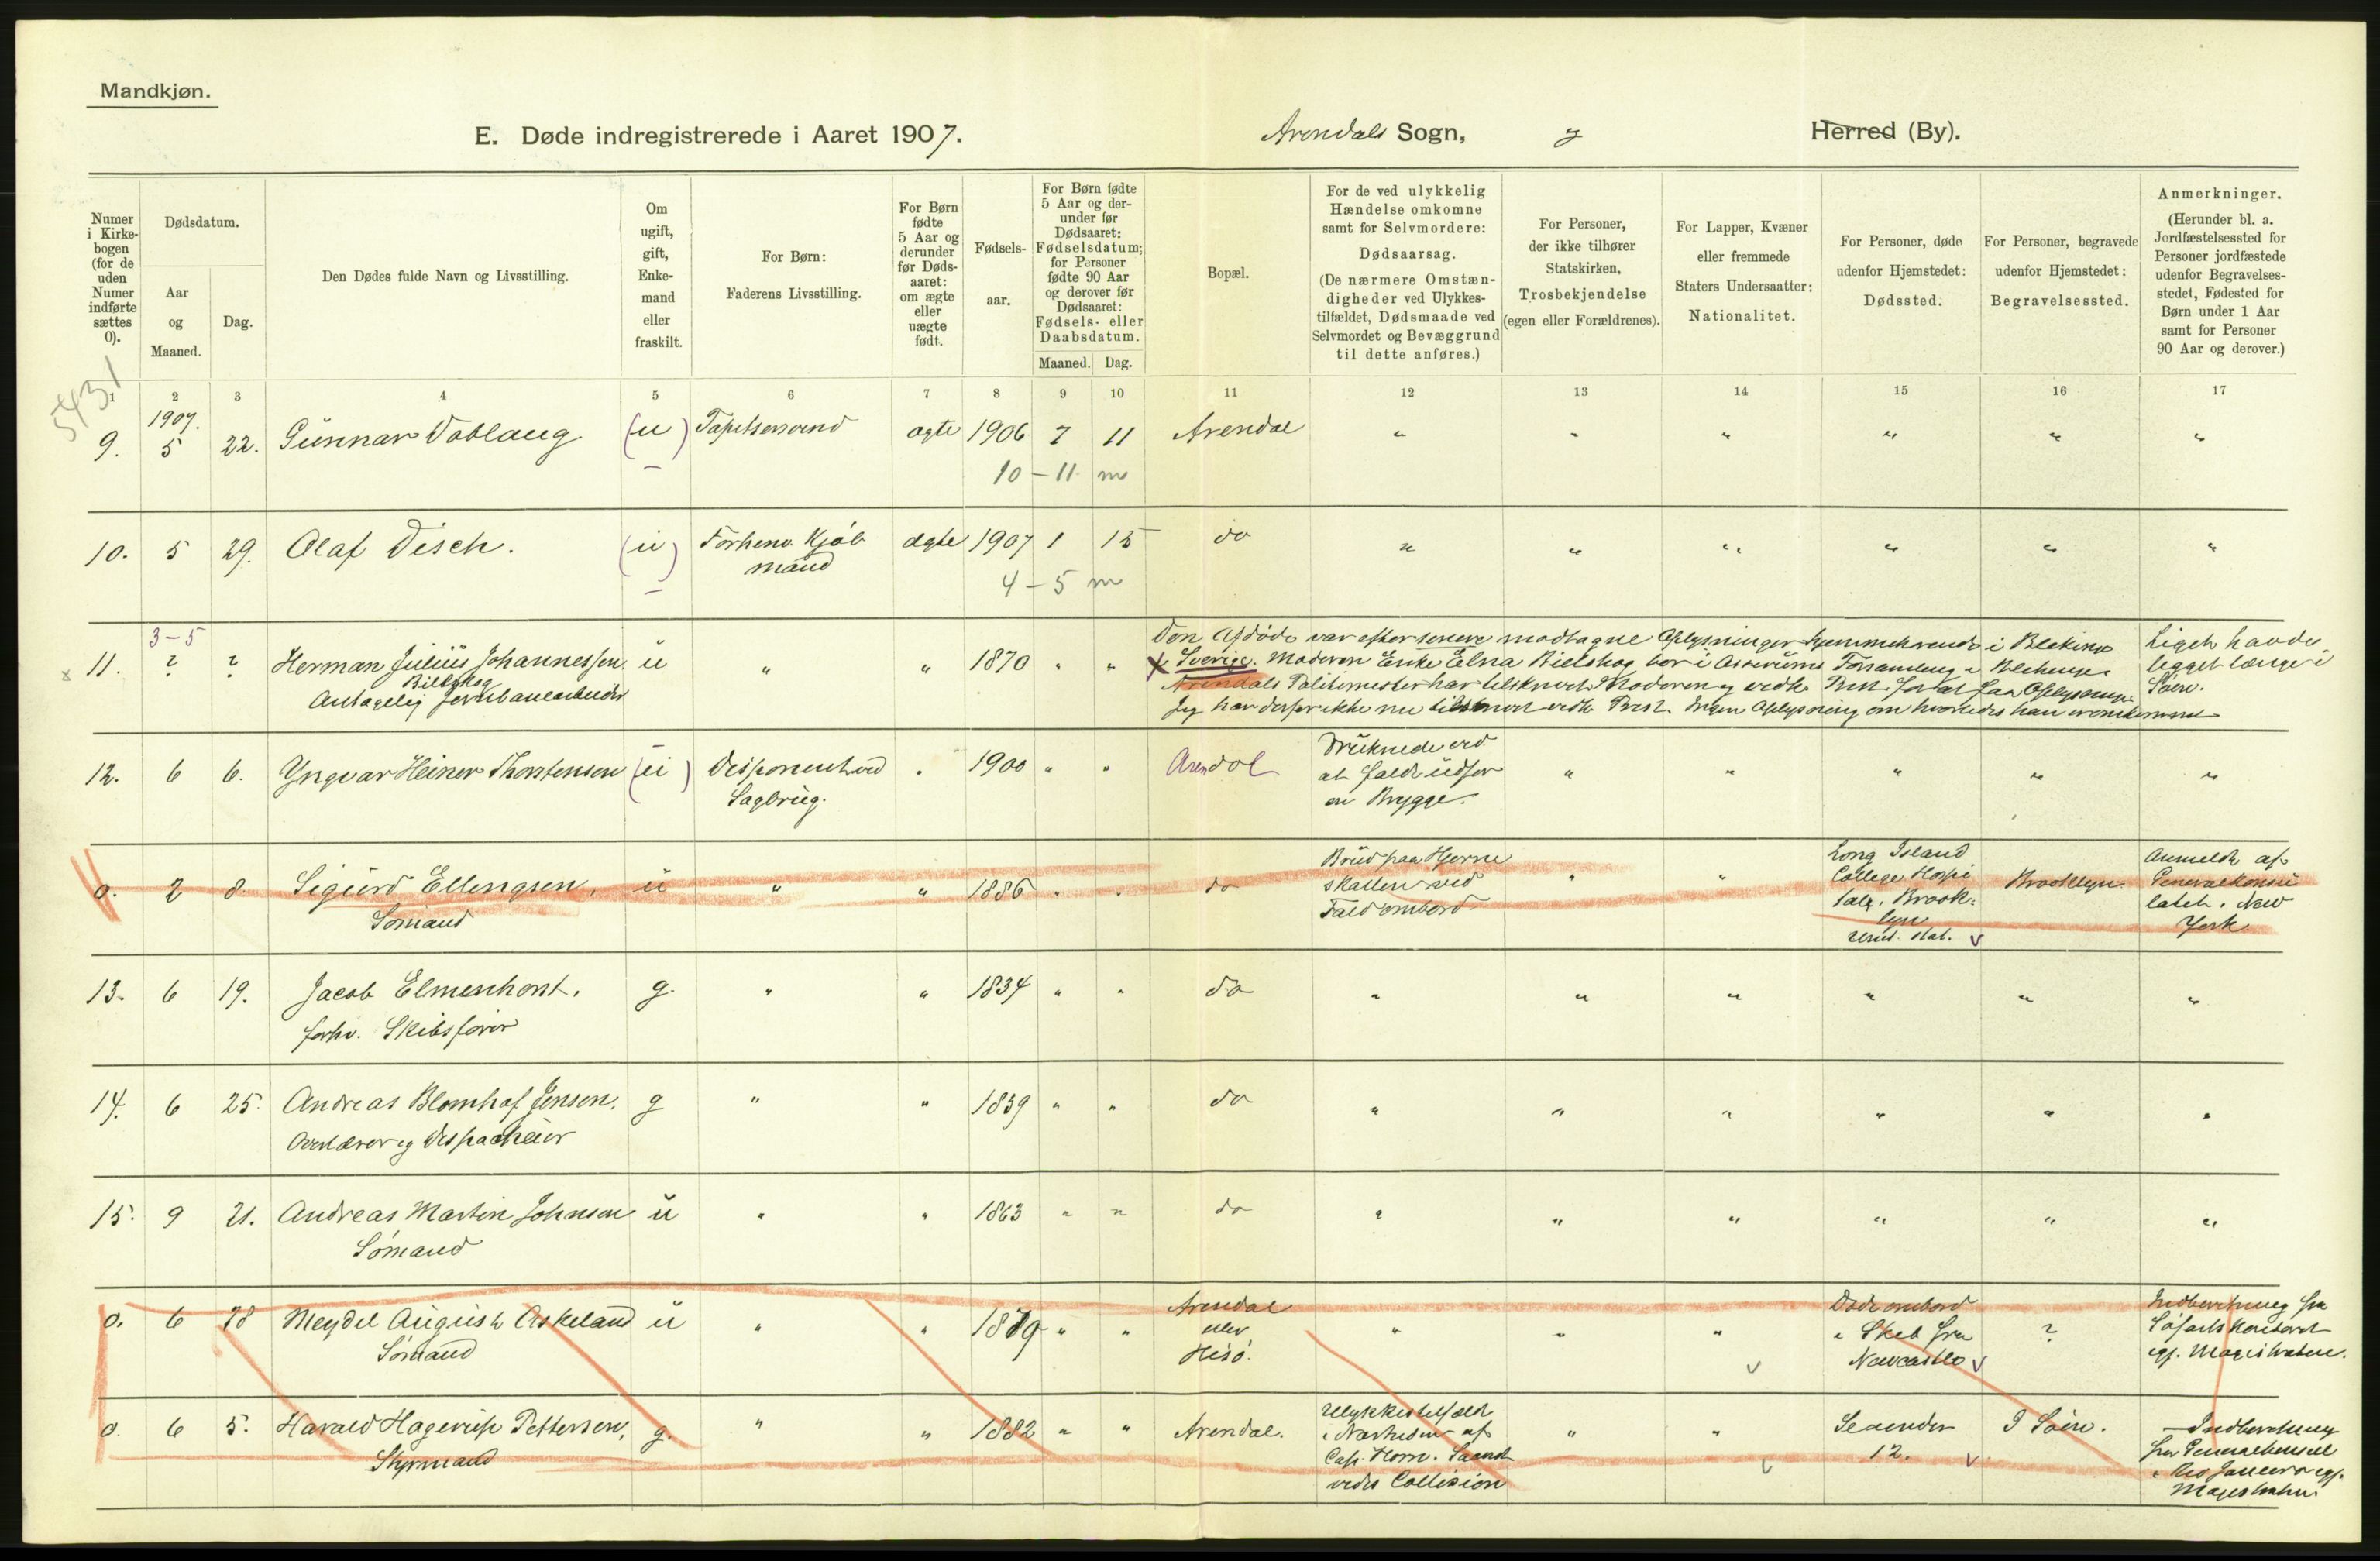 Mandkjøn.
E. Døde indregistrerede i Aaret 1907. Arendals Sogn, og Herred (By).
Numer i Kirkebogen (for de uden Numer indførte sættes 0).
Dødsdatum.
Aar og Maaned.
Dag.
Den Dødes fulde Navn og Livsstilling.
Om ugift, gift, Enkemand eller fraskilt.
For Børn:
Faderens Livsstilling.
For Børn fødte 5 Aar og derunder før Dødsaaret: om ægte eller uægte født.
Fødselsaar.
For Børn fødte 5 Aar og derunder før Dødsaaret: Fødselsdatum; for Personer fødte 90 Aar og derover før Dødsaaret: Fødsels- eller Daabsdatum.
Maaned. Dag.
Bopæl.
For de ved ulykkelig Hændelse omkomne samt for Selvmordere:
Dødsaarsag.
(De nærmere Omstændigheder ved Ulykkestilfældet, Dødsmaade ved Selvmordet og Bevæggrund til dette anføres.)
For Personer, der ikke tilhører Statskirken,
Trosbekjendelse
(egen eller Forældrenes).
For Lapper, Kvæner eller fremmede Staters Undersaatter:
Nationalitet.
For Personer, døde udenfor Hjemstedet:
Dødssted.
For Personer, begravede udenfor Hjemstedet:
Begravelsessted.
Anmerkninger.
(Herunder bl. a. Jordfæstelsessted for Personer jordfæstede udenfor Begravelsesstedet, Fødested for Børn under 1 Aar samt for Personer 90 Aar og derover.)
5431
1 2 3 4 5 6 7 8 9 10 11 12 13 14 15 16 17
1907.
9. 5 22. Gunnar Vablaug (u) ægte 1906 7 11 Arendal " " " " " "
10 - 11 m
10. 5 29. Olaf Disch. (u) Forhenv. Kjøb mand ægte 1907 1 15 do " " " " " "
4 - 5 m
3 - 5
x 11. ? ? Herman Julius Johannessen u " " 1870 " "
Antagelig Jernbanearbeider
Den Afdøde var efter senere modtagne Oplysninger hjemmehørende i Blekinge
x i Sverige. Moderen Enke Elna bor i Forsamling i Blekinge.
Arendals Politimester har tilskrevet Moderen og vedk. Prest for at faa Oplysninger
Jeg har derfor ikke nu tilskrevet vedk. Prest. Ingen Oplysning om hvorledes han er omkommet
Liget havde ligget længe i Søen.
12. 6 6. Yngvar Heiner Thorstensen (u) Disponent ved Sagbrug. " 1900 " " Arendal Druknede ved at falde udfor en Brygge. " " " " "
0. 2 8. Sigurd Ellingsen, u " " 1886 " " do Brud paa Hjerne skallen ved Fald ombord " " Long Island College Hospi tal, Brook- lyn Unit. Stat. v Brooklyn. Anmeldt af Generalkonsu latet i New York
Sømand
13. 6 19. Jacob Elmenhorst. g. " " 1834 " " do " " " " " "
forhv. Skibsfører
14. 6 25. Andreas Blomhof Jensen. g " " 1839 " " do " " " " " "
Overlærer og Dispacheur
15. 9 21. Andreas Martin Johnsen u " " 1863 " " do " " " " " "
Sømand
0. 6 28 Meydel August Askeland u " " 1879 " " Arendal eller Hisø. " " " v Døde ombord i Skib fra Newcastle v ? Indberetning fra Søfartskontoret egj. Magistraten.
Sømand
0. 6 5. Harald Hagerup Pettersen, g. " " 1882 " " Arendal. Ulykkestilfælde i Nærheden af Cap Horn. Saaret ved Collision " " v 12. v I Søen. Indberetning fra Generalkonsul i Rio Janeiro egj. Magistraten.
Styrmand